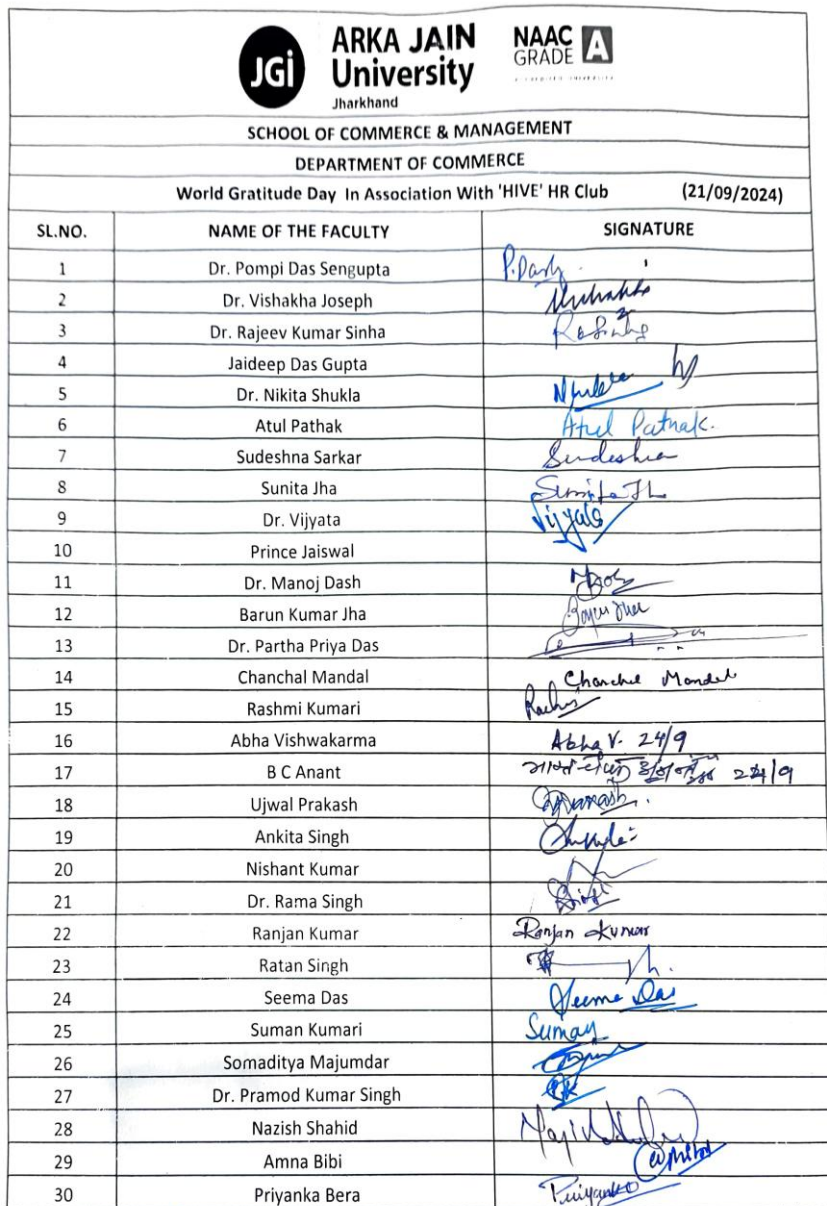 JGi ARKA JAIN University Jharkhand NAAC GRADE A
SCHOOL OF COMMERCE & MANAGEMENT
DEPARTMENT OF COMMERCE
World Gratitude Day In Association With 'HIVE' HR Club (21/09/2024)
SL.NO. NAME OF THE FACULTY SIGNATURE
1 Dr. Pompi Das Sengupta
2 Dr. Vishakha Joseph
3 Dr. Rajeev Kumar Sinha
4 Jaideep Das Gupta
5 Dr. Nikita Shukla
6 Atul Pathak Atul Pathak.
7 Sudeshna Sarkar Sudeshna
8 Sunita Jha Sunita Jha
9 Dr. Vijyata Vijyata
10 Prince Jaiswal
11 Dr. Manoj Dash
12 Barun Kumar Jha
13 Dr. Partha Priya Das
14 Chanchal Mandal Chanchal Mandal
15 Rashmi Kumari
16 Abha Vishwakarma Abha V. 24/9
17 B C Anant 24/9
18 Ujwal Prakash
19 Ankita Singh
20 Nishant Kumar
21 Dr. Rama Singh
22 Ranjan Kumar Ranjan Kumar
23 Ratan Singh
24 Seema Das Seema Das
25 Suman Kumari Suman
26 Somaditya Majumdar
27 Dr. Pramod Kumar Singh
28 Nazish Shahid
29 Amna Bibi
30 Priyanka Bera Priyanka